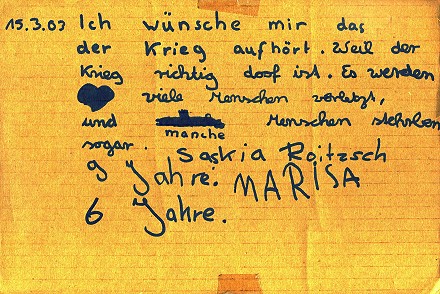 15.3.03 Ich wünsche mir das
der Krieg aufhört. Weil der
Krieg richtig doof ist. Es werden
viele Menschen verletzt,
und manche Menschen stehrben
sogar. Saskia Roitzsch
9 Jahre. MARISA
6 Jahre.